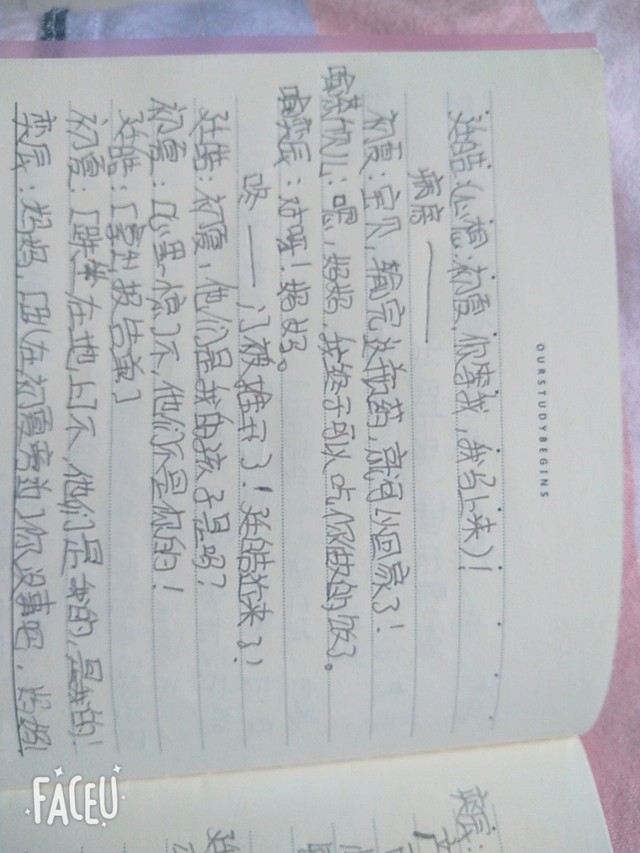 OURSTUDYBEGINS
廷皓:(心想:初夏,你等我,我马上来)!
病房——
初夏:宝贝,输完这瓶药,就可以回家了!
喻慕悦儿:嗯,妈妈,我终于可以吃你做的饭了。
喻奕辰:对呀!妈妈。
咚——门被撞开了!廷皓进来了!
廷皓:初夏,他们是我的孩子是吗?
初夏:[心里一惊]不,他们不是你的!
廷皓:[拿出报告单]
初夏:[跌坐在地上]不,他们是我的,是我的!
奕辰:妈妈,[趴在初夏旁边]你没事吧,妈妈!
奕辰:
FACEU